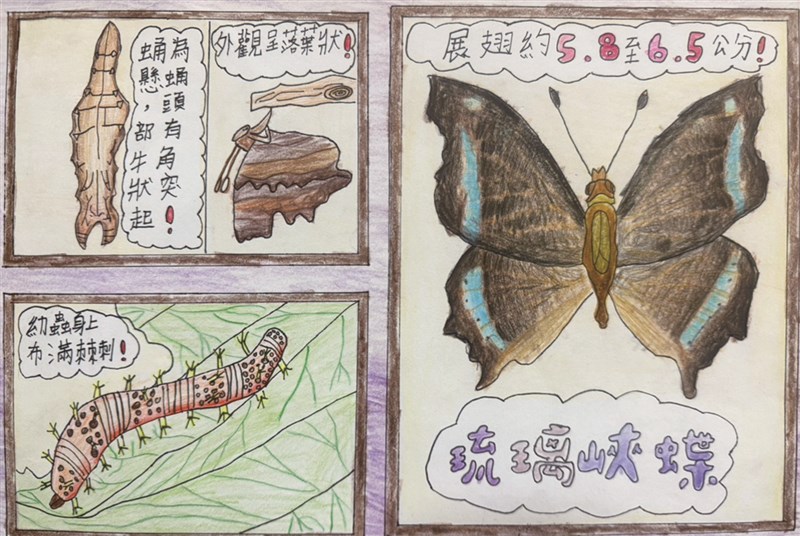 蛹為
懸蛹
，頭
部有
牛角
狀突
起！
外觀呈落葉狀！
幼蟲身上
布滿棘刺！
展翅約5.8至6.5公分！
琉璃峽蝶